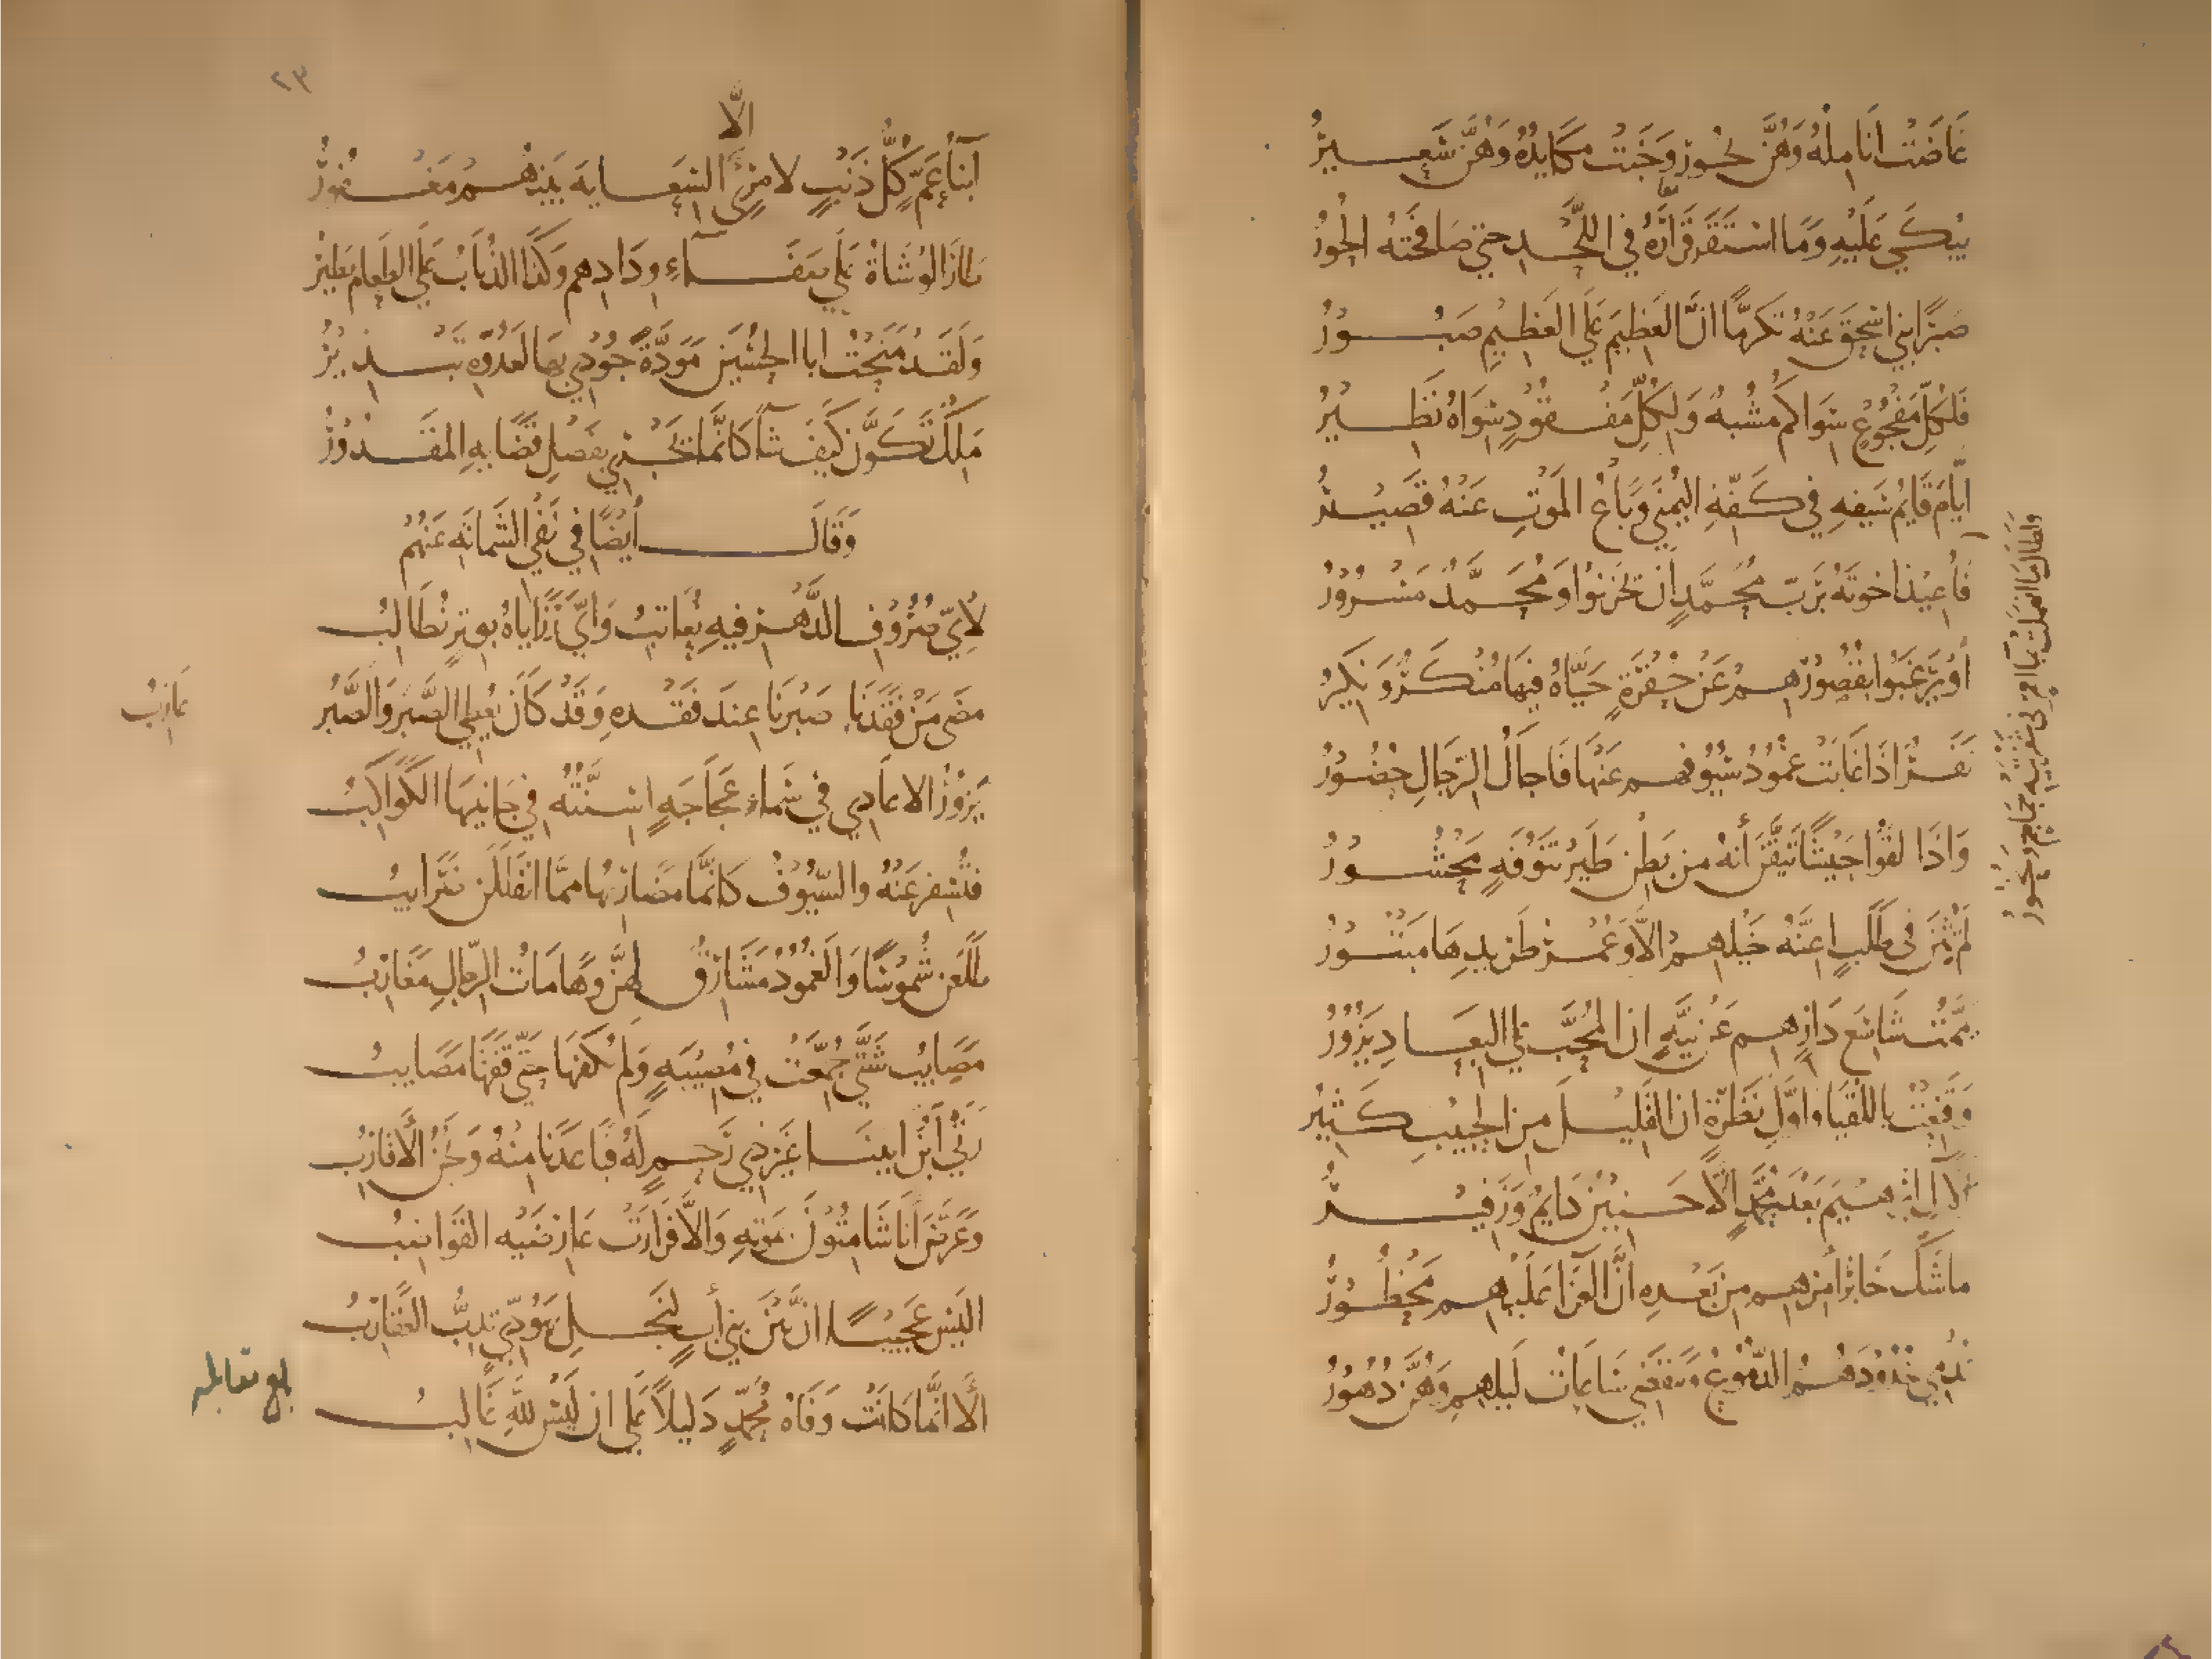 غَاضَتْ اَنَامِلُهُ وَهُنَّ بُحُورٌ وَخَبَتْ مَكَايِدُهُ وَهُنَّ سَعِيرُ
يُبْكَي عَلَيْهِ وَمَا اسْتَقَرَّ قَرَارُهُ فِي اللَّحْدِ حتي صَافَحَتْهُ الحُورُ
صَبْرًا بني اسْحَقَ عَنْهُ تَكَرُّمًا اِنَّ العَظِيمَ عَلَي العَظِيمِ صَبُورُ
فَلِكُلِّ مَفْجُوعٍ سِوَاكُم مُشْبِهٌ وَلِكُلِّ مَفْقُودٍ سِوَاهُ نَظِيرُ
ايَّامَ قَايِمُ سَيفِهِ فِي كَفِّهِ اليُمْنَي وَبَاعُ المَوْتِ عَنْهُ قَصِيرُ
فَأُعِيذُ اخوَتَهُ بِرَبِّ مُحَمَّدٍ اَنْ تَحْزَنُوا وَمُحَمَّدٌ مَسْرُورُ
أَوْ يَرْغَبُوا بِقُصُورِهِمْ عَنْ حُفْرَةٍ حَيَّاهُ فِيهَا مُنْكَرٌ وَنَكِيرُ
نَفَرٌ اذَا غَابَتْ غُمُودُ سُيُوفِهِم عَنْهَا فَاجَالُ الرِّجَالِ حُضُورُ
وَاذَا لَقُوا جَيْشًا تَيَقَّنَ أَنهُ من بَطْنِ طَيْرِ تَنُوفَةٍ مَحْشُورُ
لَمْ تُثْنَ في طَلَبٍ اعِنَّةُ خَيْلِهِمْ الاَّ وَعُمْرُ طَرِيدِهَا مَبْتُورُ
يَمَّمْتُ شَاسِعَ دَارِهِم عَنْ نِيَّةٍ ان المُحِبَّ عَلي البِعَادِ يَزُورُ
وَقَنِعْتُ باللُّقْيَا واوَّلِ نَظْرَةٍ ان القَلِيلَ مِنَ الحَبِيبِ كَثِيرُ
الآلِ ابْرهِيمَ بَعْدَ مُحَمَّدٍ الاَّ حَنِينٌ دَايِمٌ وَزَفِيرُ
ما شَكَّ خَابِرُ امْرِهِم مِن بَعْدِهِ اَنَّ العَزَا عَلَيْهِم مَحْظُورُ
تُدْمِي خُدُودَهُمُ الدُّمُوعُ وَتَنْقَضِي سَاعَاتُ لَيلِهِمِ وَهُنَّ دُهُورُ
٢٣
اِلَّا
أَبْنَاءُ عَمٍّ كُلُّ ذَنْبٍ لامْرِيٍ السِّعَايَه بَيْنَهُمْ مَغْفُورُ
طَارَ الوُشَاةُ عَلَي صَفَاءِ وِدَادِهِم وَكَذَا الذُّبَابُ عَلَي الطَّعَامِ يَطِيرُ
وَلَقَدْ مَنَحْتُ ابا الحُسَيْنِ مَوَدَّةً جُودِي بِهَا لِعَدُوِّهِ تَبْذِيرُ
مَلِكٌ تَكَوَّنَ كَيْفَ شَآ كَانَّمَا يَجْرِي بِفَصْلِ قَضَايِهِ المَقْدُورُ
وَقَالَ أَيْضًا فِي نَفْيِ الشَّمَاتَهِ عَنْهُمْ
لأَيِّ صُرُوفِ الدَّهْرِ فِيهِ نُعَاتِبُ وَايَّ رَزَايَاهُ بِوِتْرٍ نُطَالِبُ
مضَي مَنْ فَقَدْنَا صَبْرَنَا عِندَ فَقْدِهِ وَقَدْ كَانَ يُعْطِي الصَّبْرَ وَالصَّبْرُ
عَازِبُ
يَزُورُ الاعَادِي فِي سَمَاءِ عَجَاجَةٍ اسِنَّتُهُ فِي جَانِبَيْهَا الكَوَاكِبُ
فَتُسْفِرُ عَنْهُ والسُّيُوفُ كَانَّمَا مَضَارِبُهَا مِمَّا انْفَلَلْنَ ضَرَايِبُ
طَلَعْنَ شُمُوسًا وَالغُمُودُ مَشَارِقٌ لَهُنَّ وَهَامَاتُ الرِّجَالِ مَغَارِبُ
مَصَايِبُ شَتَّي جُمِّعَتْ فِي مُصِيبَهٍ وَلَمْ يَكْفِهَا حَتَّي قَفَتْهَا مَصَايِبُ
رَثَي ابْنَ ابِينَا غَيْرُ ذِي رَحِمٍ لَهُ فَبَاعَدَنَا مِنْهُ وَنَحْنُ الاَقَارِبُ
وَعَرَّضَ اَنَّا شَامِتُونَ بِمَوتِهِ وَالاَّ فَزَارَتْ عَارِضَيْهِ القَوَاضِبُ
اليْسَ عَجِيبًا انَّ بَيْنَ بَنِي أَبٍ لِنَجْلِ يَهُودِيٍّ تَدِبُّ العَقَارِبُ
أَلاَ انَّمَا كَانَتْ وَفَاةُ مُحَمَّدٍ دَلِيلاً عَلَي ان لَيْسَ للهِ غَالِبُ
بلغ مقابله